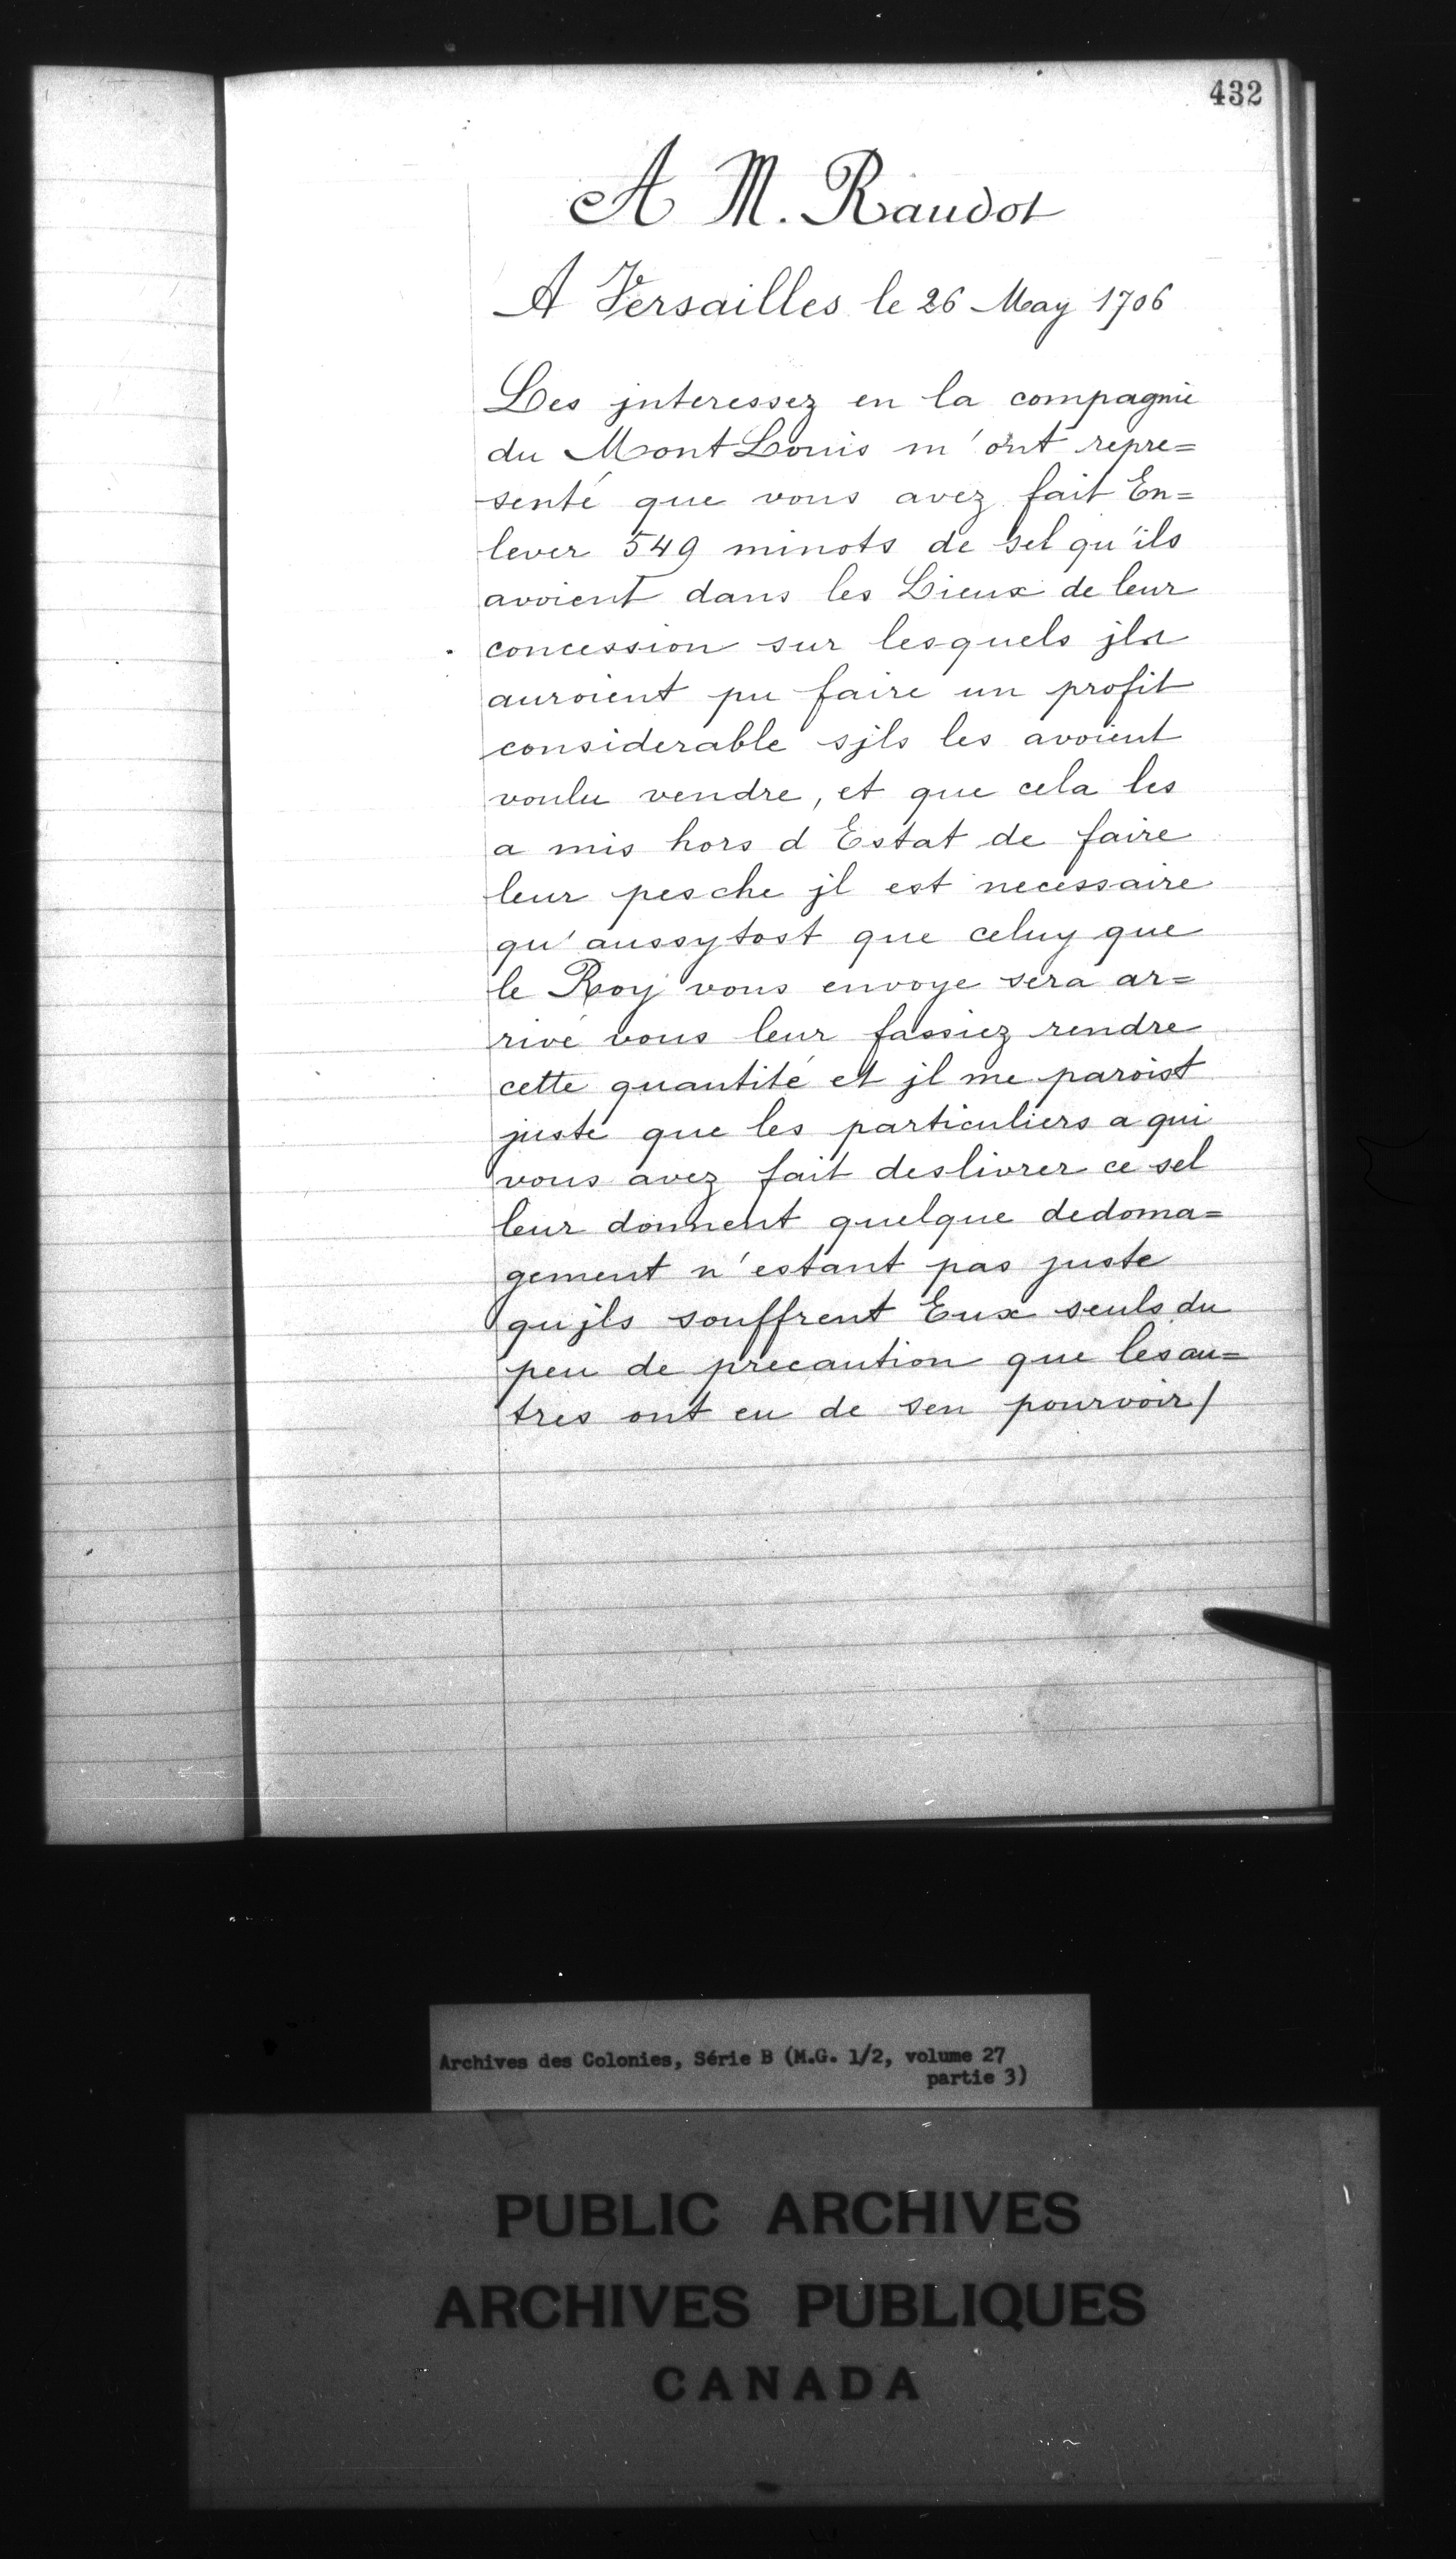 432
A M. Raudot
A Versailles le 26 May 1706
Les jnteressez en la compagnie
du Mont Louis m'ont repre=
senté que vous avez fait En=
lever 549 minots de sel qu'ils
avoient dans les Lieux de leur
concession sur lesquels jls
auroient pu faire un profit
considerable sjls les avoient
voulu vendre, et que cela les
a mis hors d Estat de faire
leur pesche jl est necessaire
qu'aussytost que celuy que
le Roy vous envoye sera ar=
rivé vous leur fassiez rendre
cette quantité et jl me paroist
juste que les particuliers a qui
vous avez fait deslivrer ce sel
leur donnent quelque dedoma=
gement n'estant pas juste
qujls souffrent Eux seuls du
peu de precaution que les au=
tres ont eu de sen pourvoir/
Archives des Colonies, Série B (M.G. 1/2, volume 27
partie 3)
PUBLIC ARCHIVES
ARCHIVES PUBLIQUES
CANADA